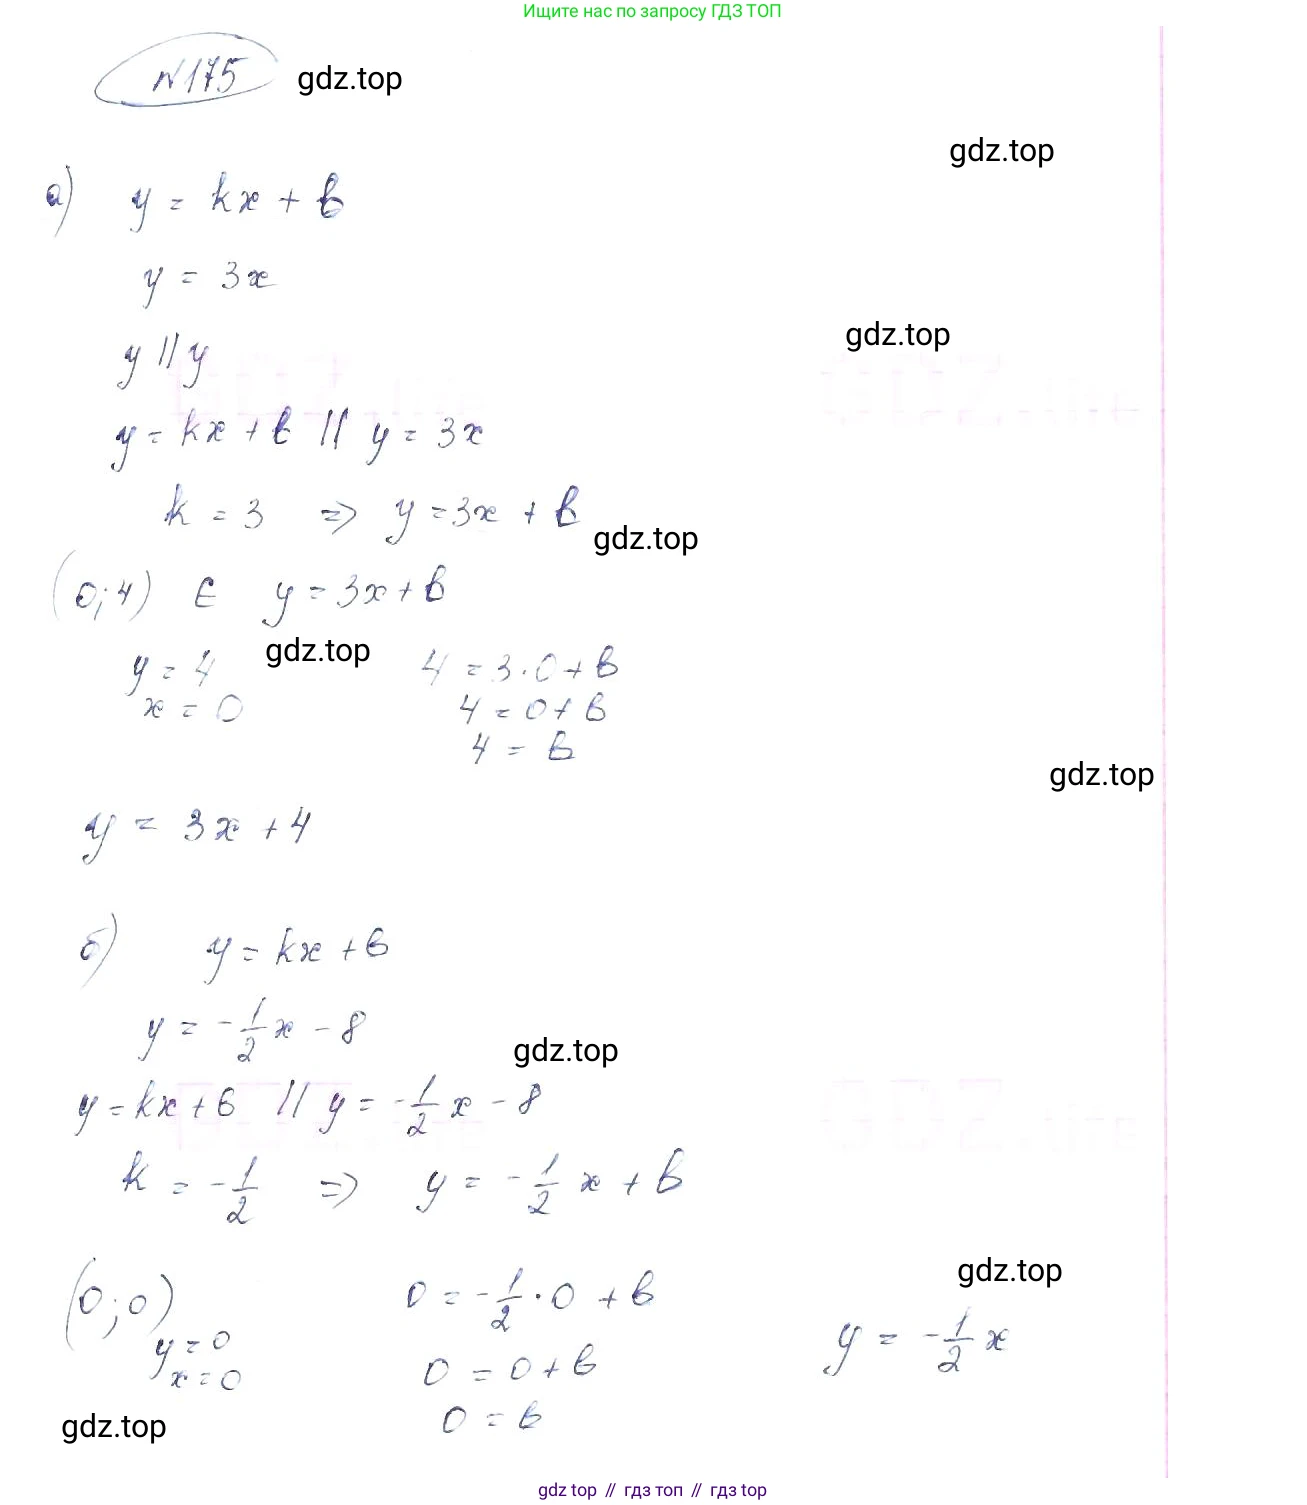 Ищите нас по запросу ГДЗ ТОП
№175 gdz.top
gdz.top
а) y = kx + b
y = 3x
gdz.top
y || y
y = kx + b || y = 3x
k = 3 => y = 3x + b
gdz.top
(0;4) ∈ y = 3x + b
y = 4 gdz.top 4 = 3·0 + b
x = 0 4 = 0 + b
4 = b
gdz.top
y = 3x + 4
б) y = kx + b
y = -1/2 x - 8
gdz.top
y = kx + b || y = -1/2 x - 8
k = -1/2 => y = -1/2 x + b
gdz.top
(0;0) 0 = -1/2 · 0 + b
y = 0 y = -1/2 x
x = 0 0 = 0 + b
gdz.top 0 = b
gdz top // гдз топ // гдз top